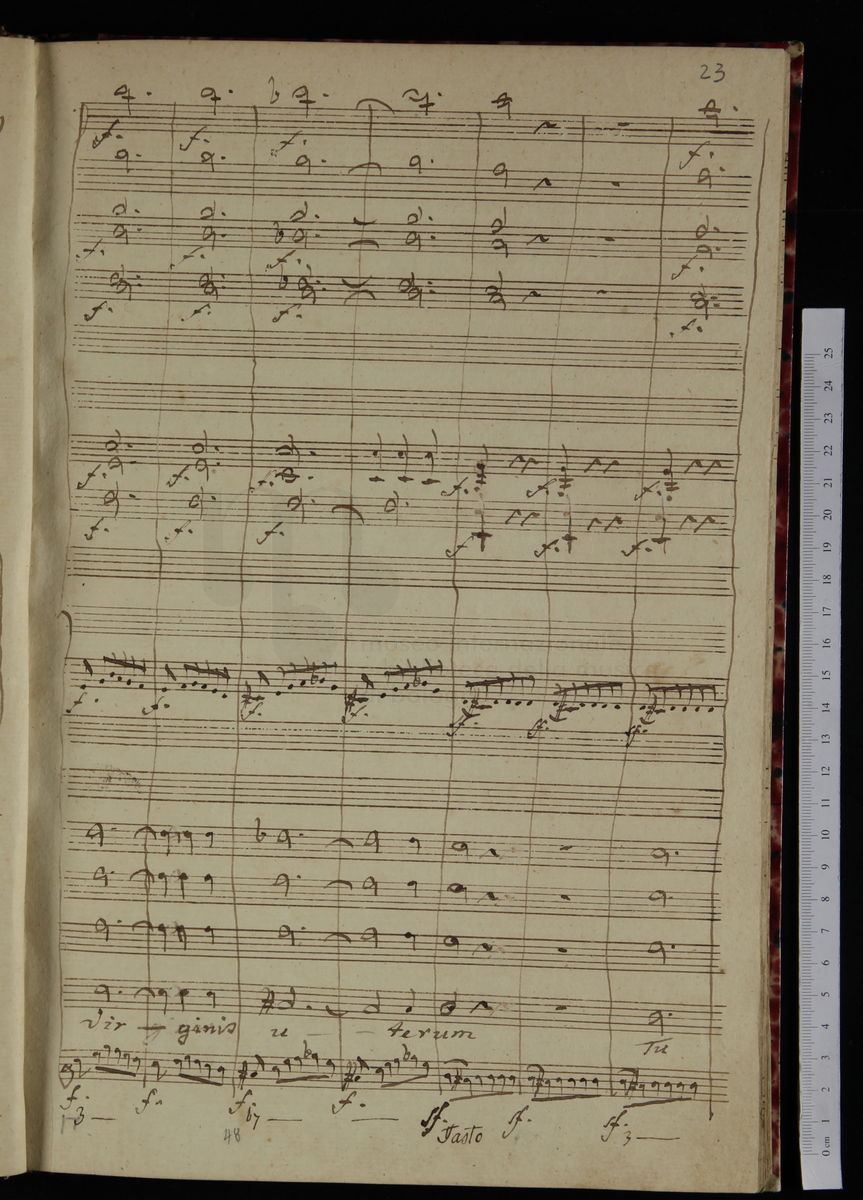 23
f. f. f. f.
f. f. f. f.
f. f. f. f.
f. f. f. f. f. f.
f. f. f. f. f. f.
f. f. f. f. sf. sf. sf.
Vir - ginis u - - terum Tu
f. f. f. f. sf. sf. sf.
3 — b7 — — Tasto 3 —
48
25
24
23
22
21
20
19
18
17
16
15
14
13
12
11
10
9
8
7
6
5
4
3
2
1
0 cm